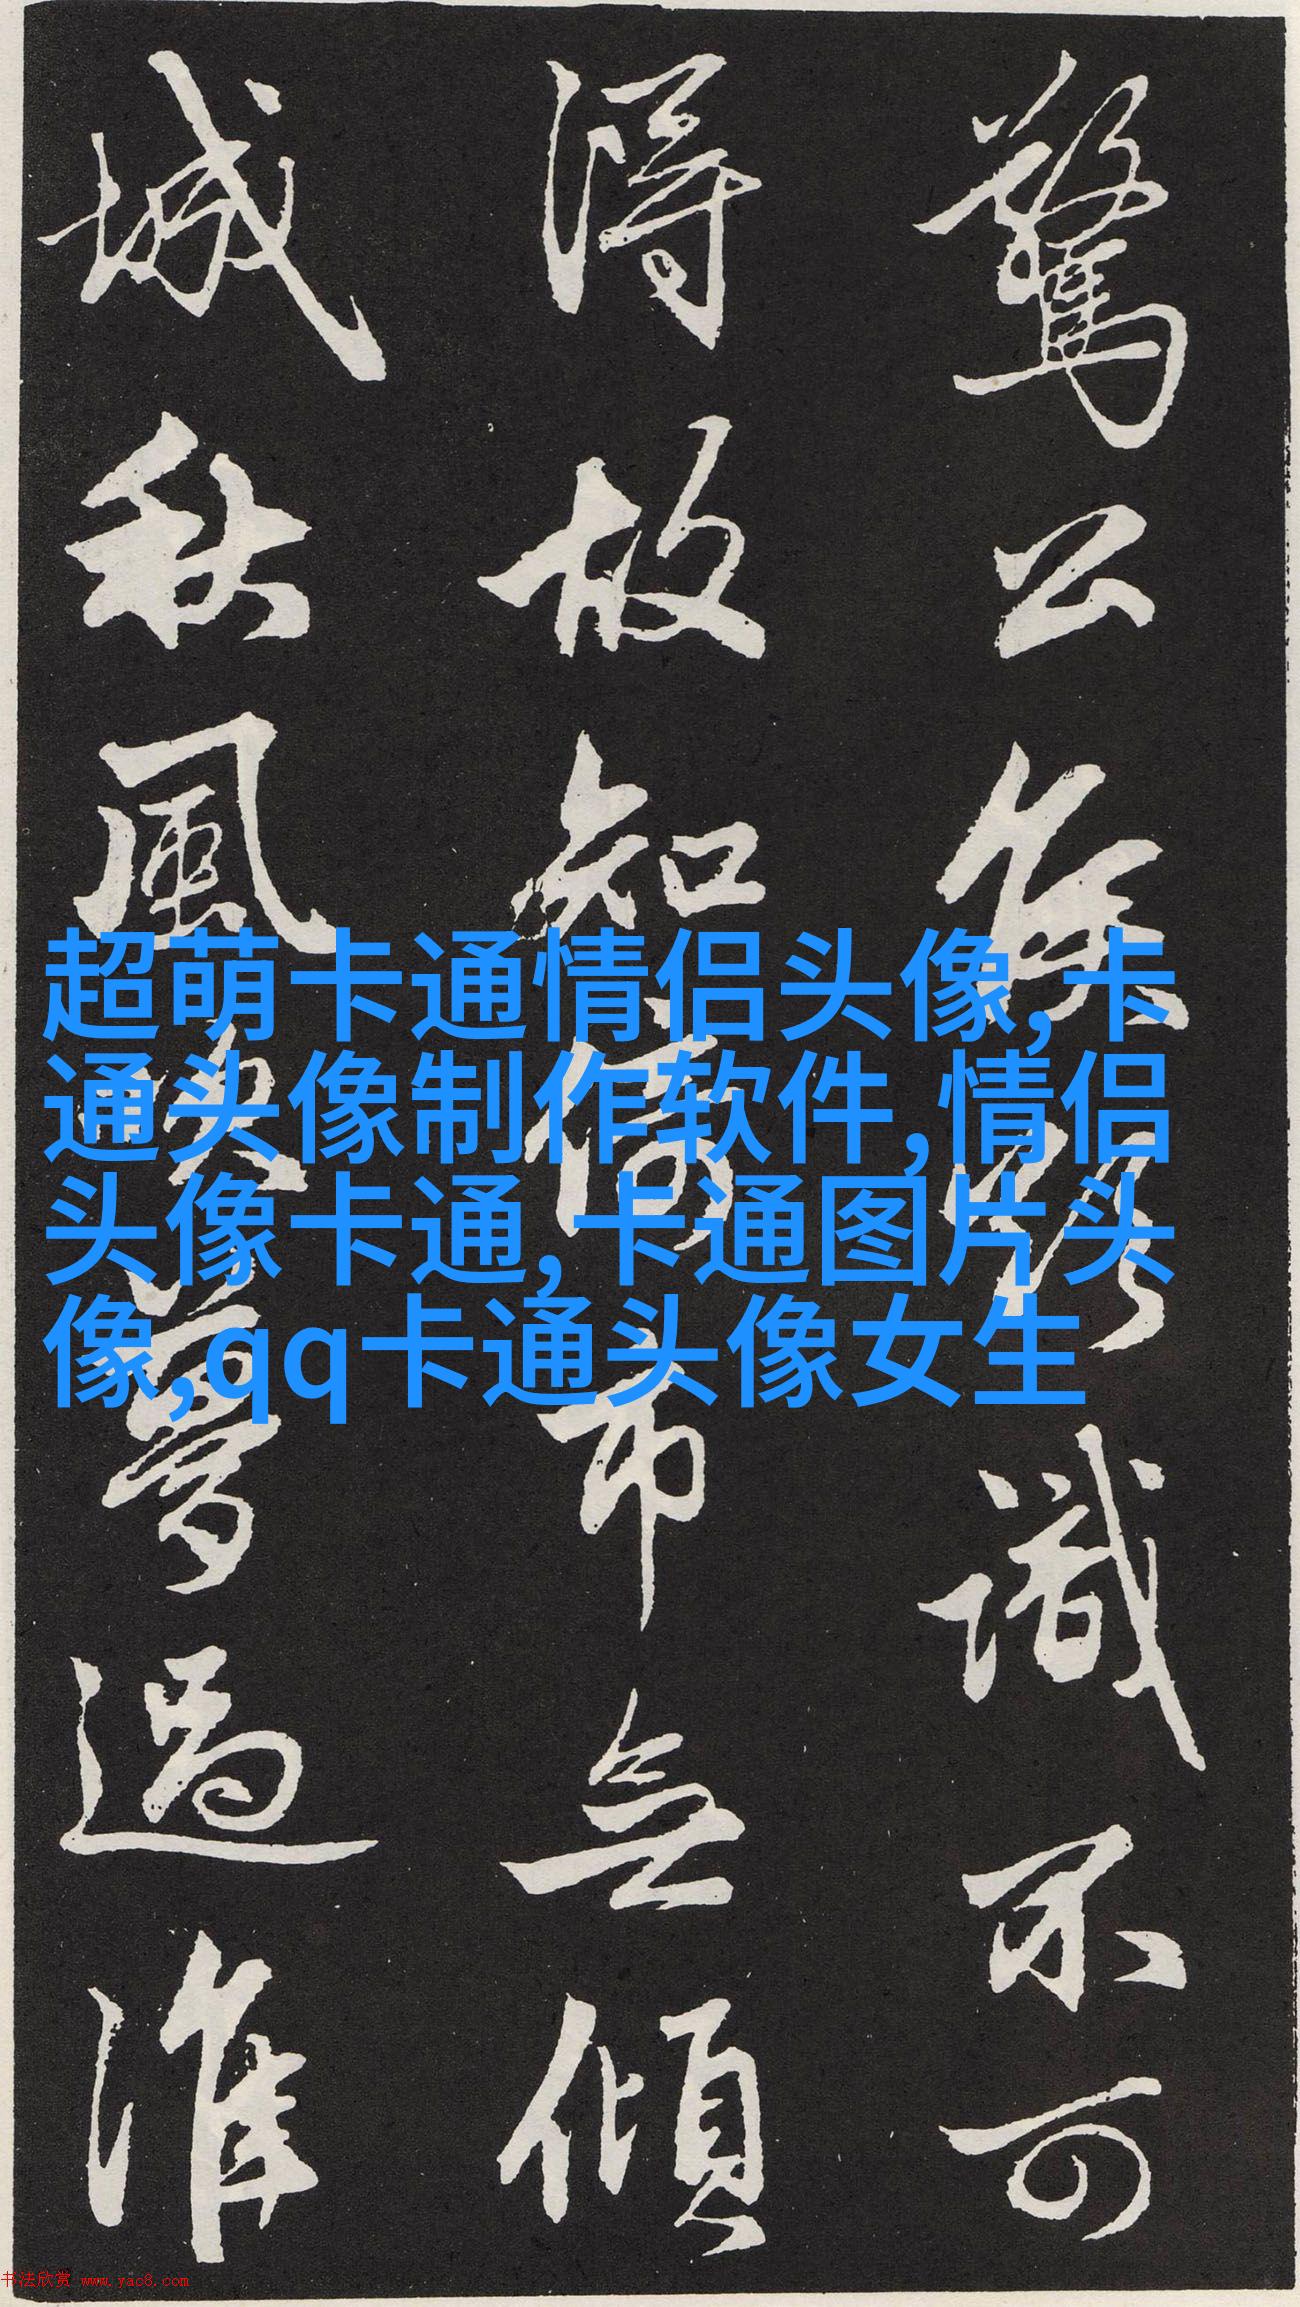 驚公侯識不可
得故知倚市無傾
城秋風吹夢過淮
超萌卡通情侣头像,卡
通头像制作软件,情侣
头像卡通,卡通图片头
像,qq卡通头像女生
书法欣赏 www.yac8.com